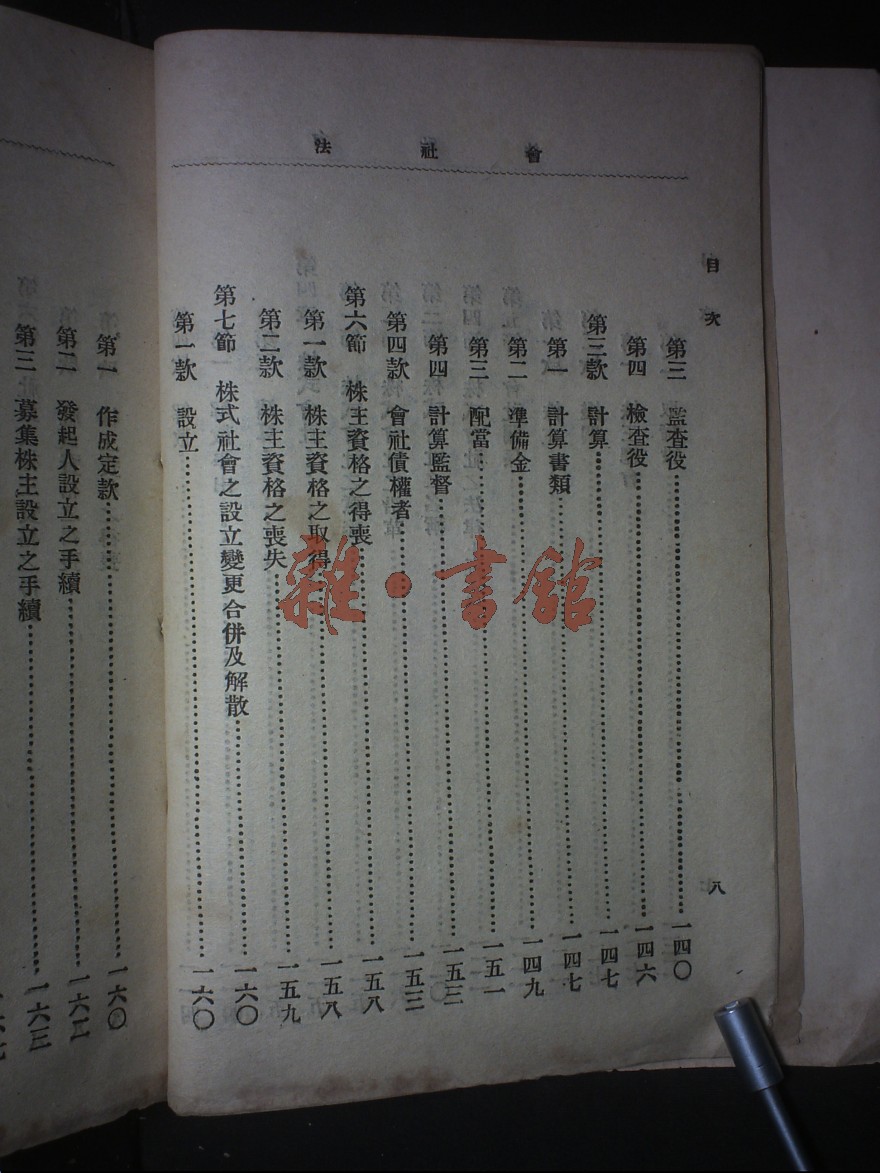 會社法
目次
八
第三 監査役 一四〇
第四 檢查役 一四六
第三款 計算 一四七
第一 計算書類 一四七
第二 準備金 一四九
第三 配當 一五一
第四 計算監督 一五三
第四款 會社債權者 一五三
第六節 株主資格之得喪 一五八
第一款 株主資格之取得 一五八
第二款 株主資格之喪失 一五九
第七節 株式社會之設立變更合併及解散 一六〇
第一款 設立 一六〇
第一 作成定款 一六〇
第二 發起人設立之手續 一六二
第三 募集株主設立之手續 一六三
雜·書館